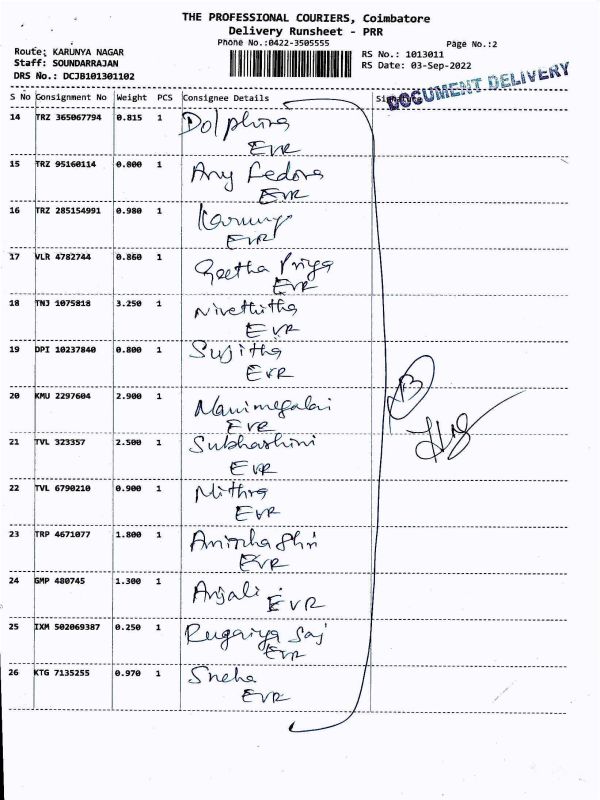 THE PROFESSIONAL COURIERS, Coimbatore
Delivery Runsheet - PRR
Phone No.:0422-3505555
Page No.:2
Route: KARUNYA NAGAR
Staff: SOUNDARRAJAN
DRS No.: DCJB101301102
RS No.: 1013011
RS Date: 03-Sep-2022
DOCUMENT DELIVERY
S No Consignment No Weight PCS Consignee Details
14 TRZ 365067794 0.815 1 Dolphina
EVR
15 TRZ 95160114 0.800 1 Any Fedora
EVR
16 TRZ 285154991 0.980 1
EVR
17 VLR 4782744 0.860 1 Geetha Priya
EVR
18 TNJ 1075818 3.250 1 Nivethitha
EVR
19 DPI 10237840 0.800 1 Sujitha
EVR
20 KMU 2297604 2.900 1 Manimegalai
EVR
21 TVL 323357 2.500 1 Subhashini
EVR
22 TVL 6790210 0.900 1 Mithra
EVR
23 TRP 4671077 1.800 1
EVR
24 GMP 480745 1.300 1 Anjali
EVR
25 IXM 502069387 0.250 1 Rugaiya Saj
EVR
26 KTG 7135255 0.970 1 Sneha
EVR
13